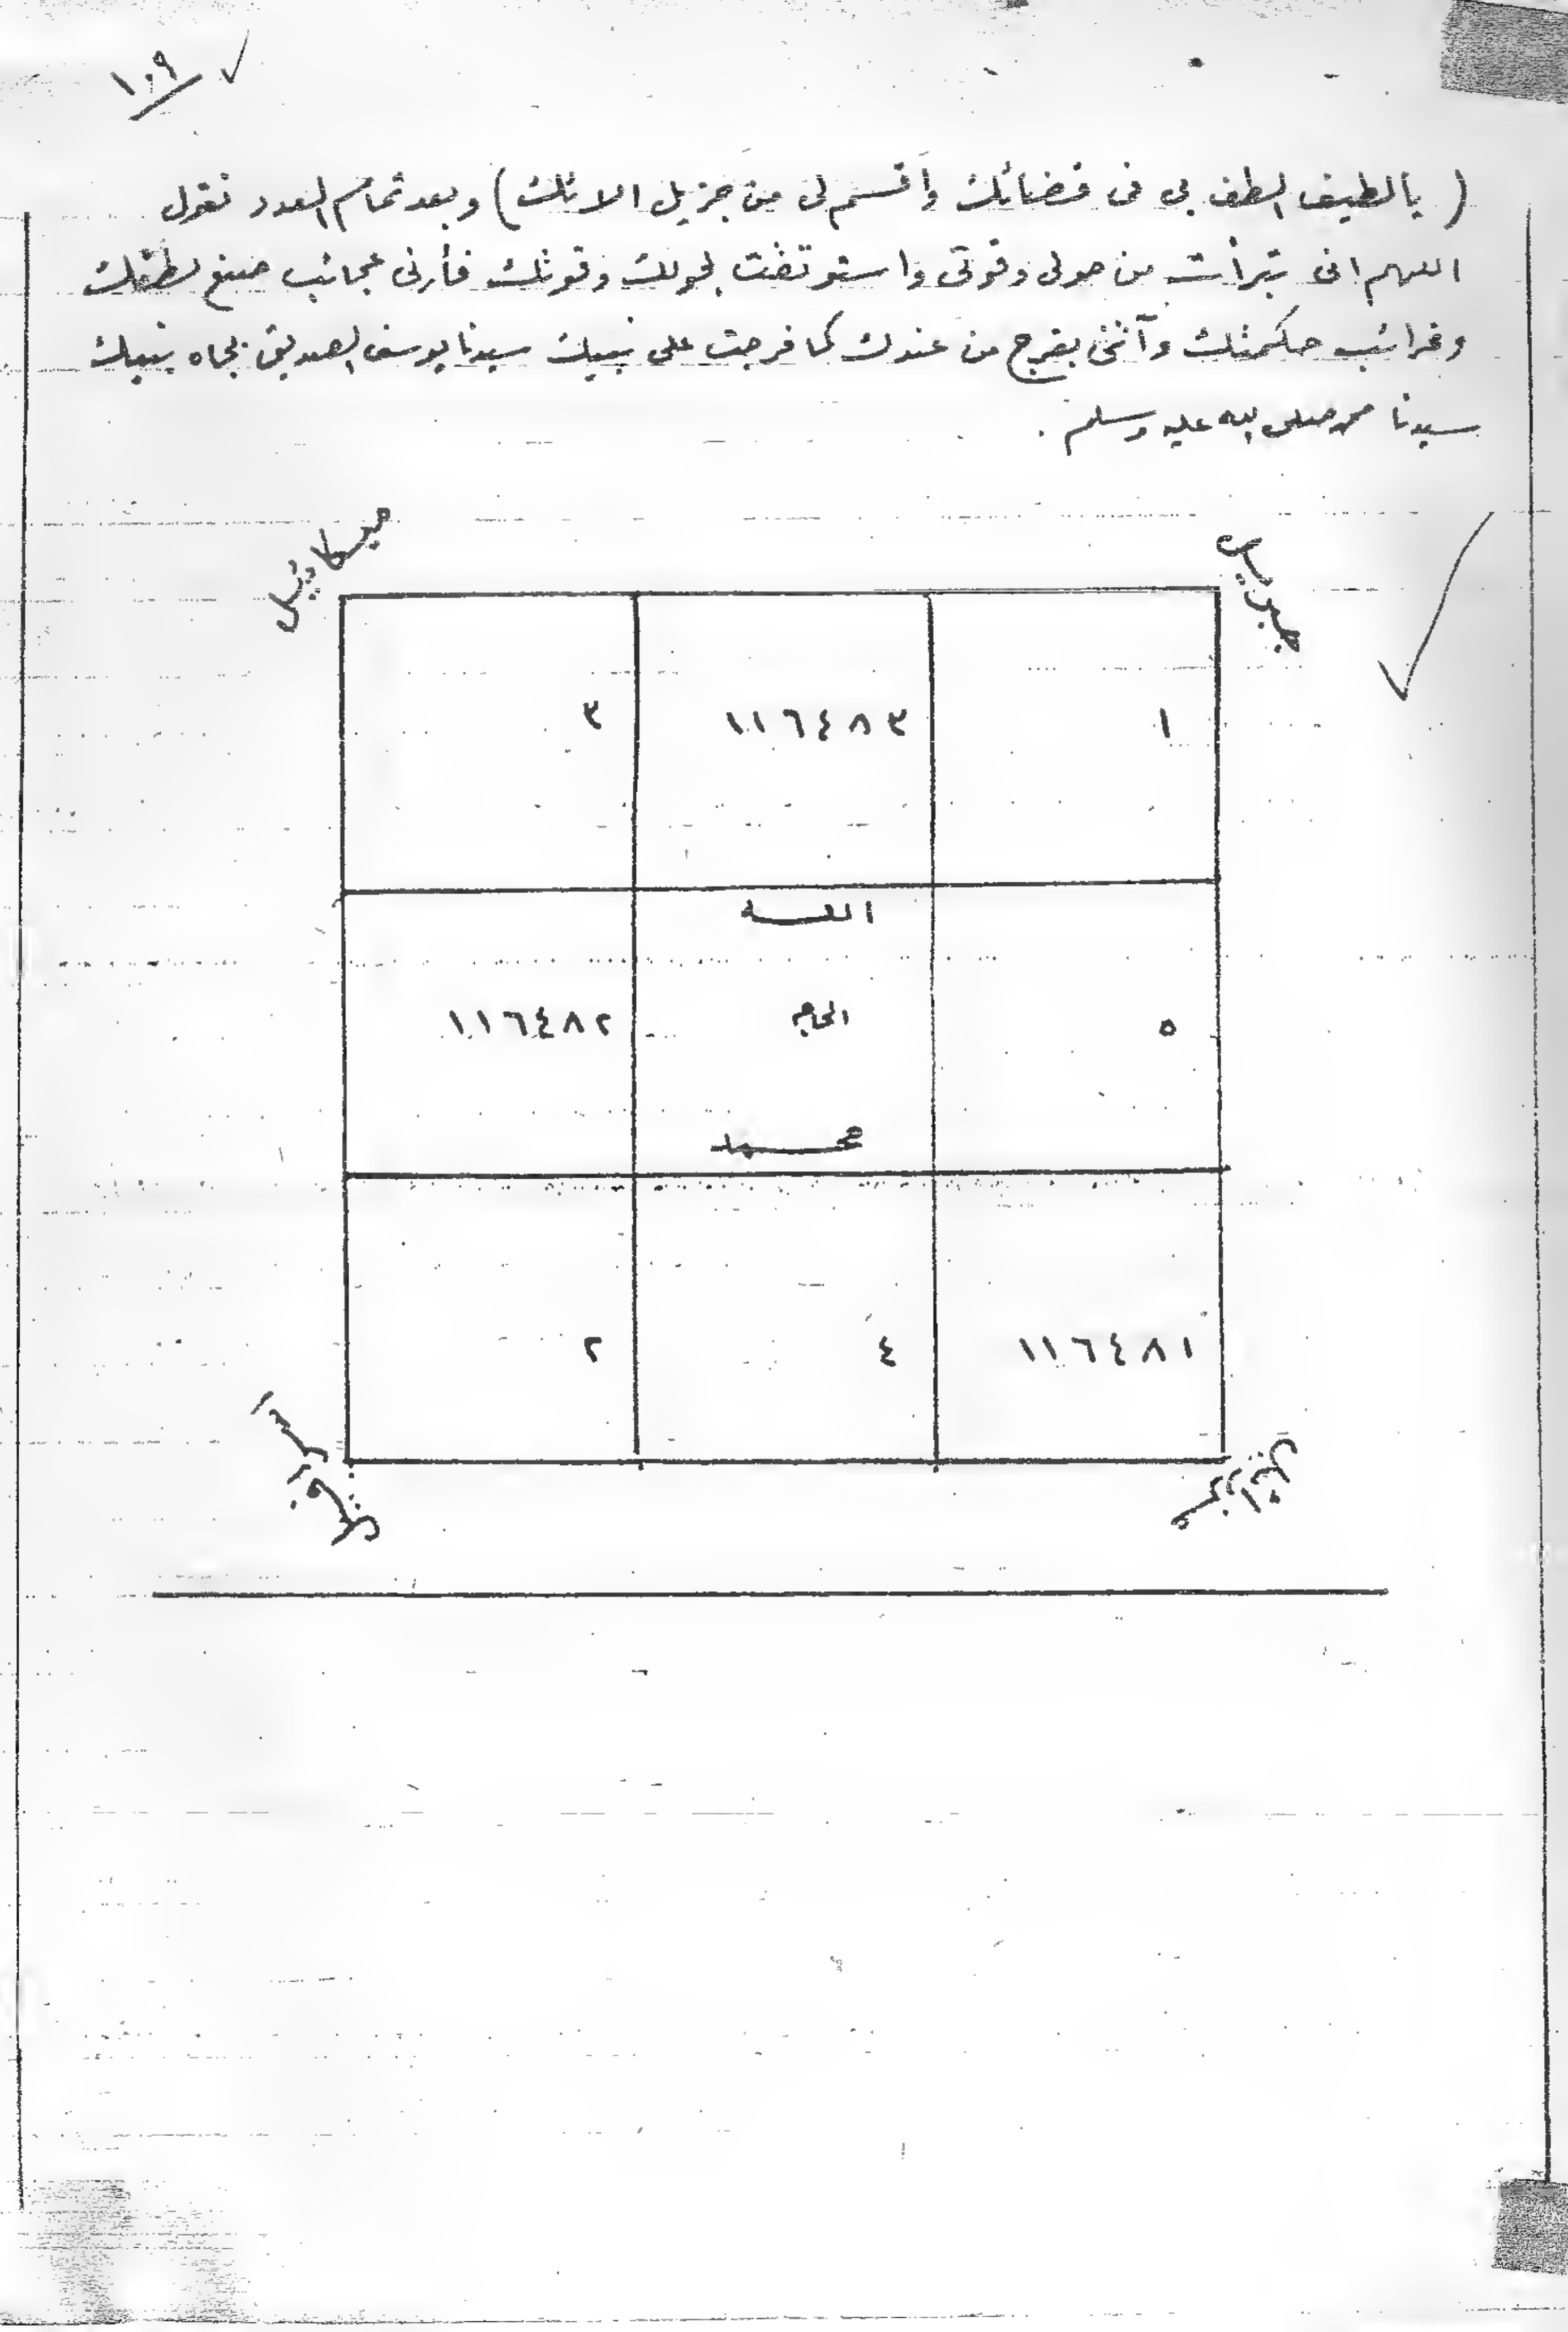 ١٠٩
( يالطيف الطف بى فى قضائك وأقسم لى من جزيل الائك ) وبعد تمام العدد تقول
اللهم انى تبرأت من حولى وقوتى واستوثقت لحولك وقوتك فأرنى عجائب صنع لطفك
وغرائب حكمتك وآتنى بفرج من عندك كما فرجت على نبيك سيدنا يوسف الصديق بجاه نبيك
سيدنا محمد صلى الله عليه وسلم .
جبريل
ميكائيل
١
١١٦٤٨٣
٣
الله
٥
١١٦٤٨٢
محمد
١١٦٤٨١
٤
٢
عزرائيل
إسرافيل